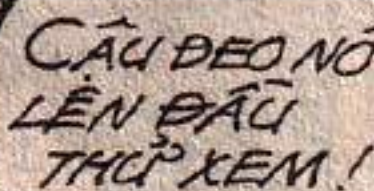 CẬU ĐEO NÓ
LÊN ĐẦU
THỬ XEM!